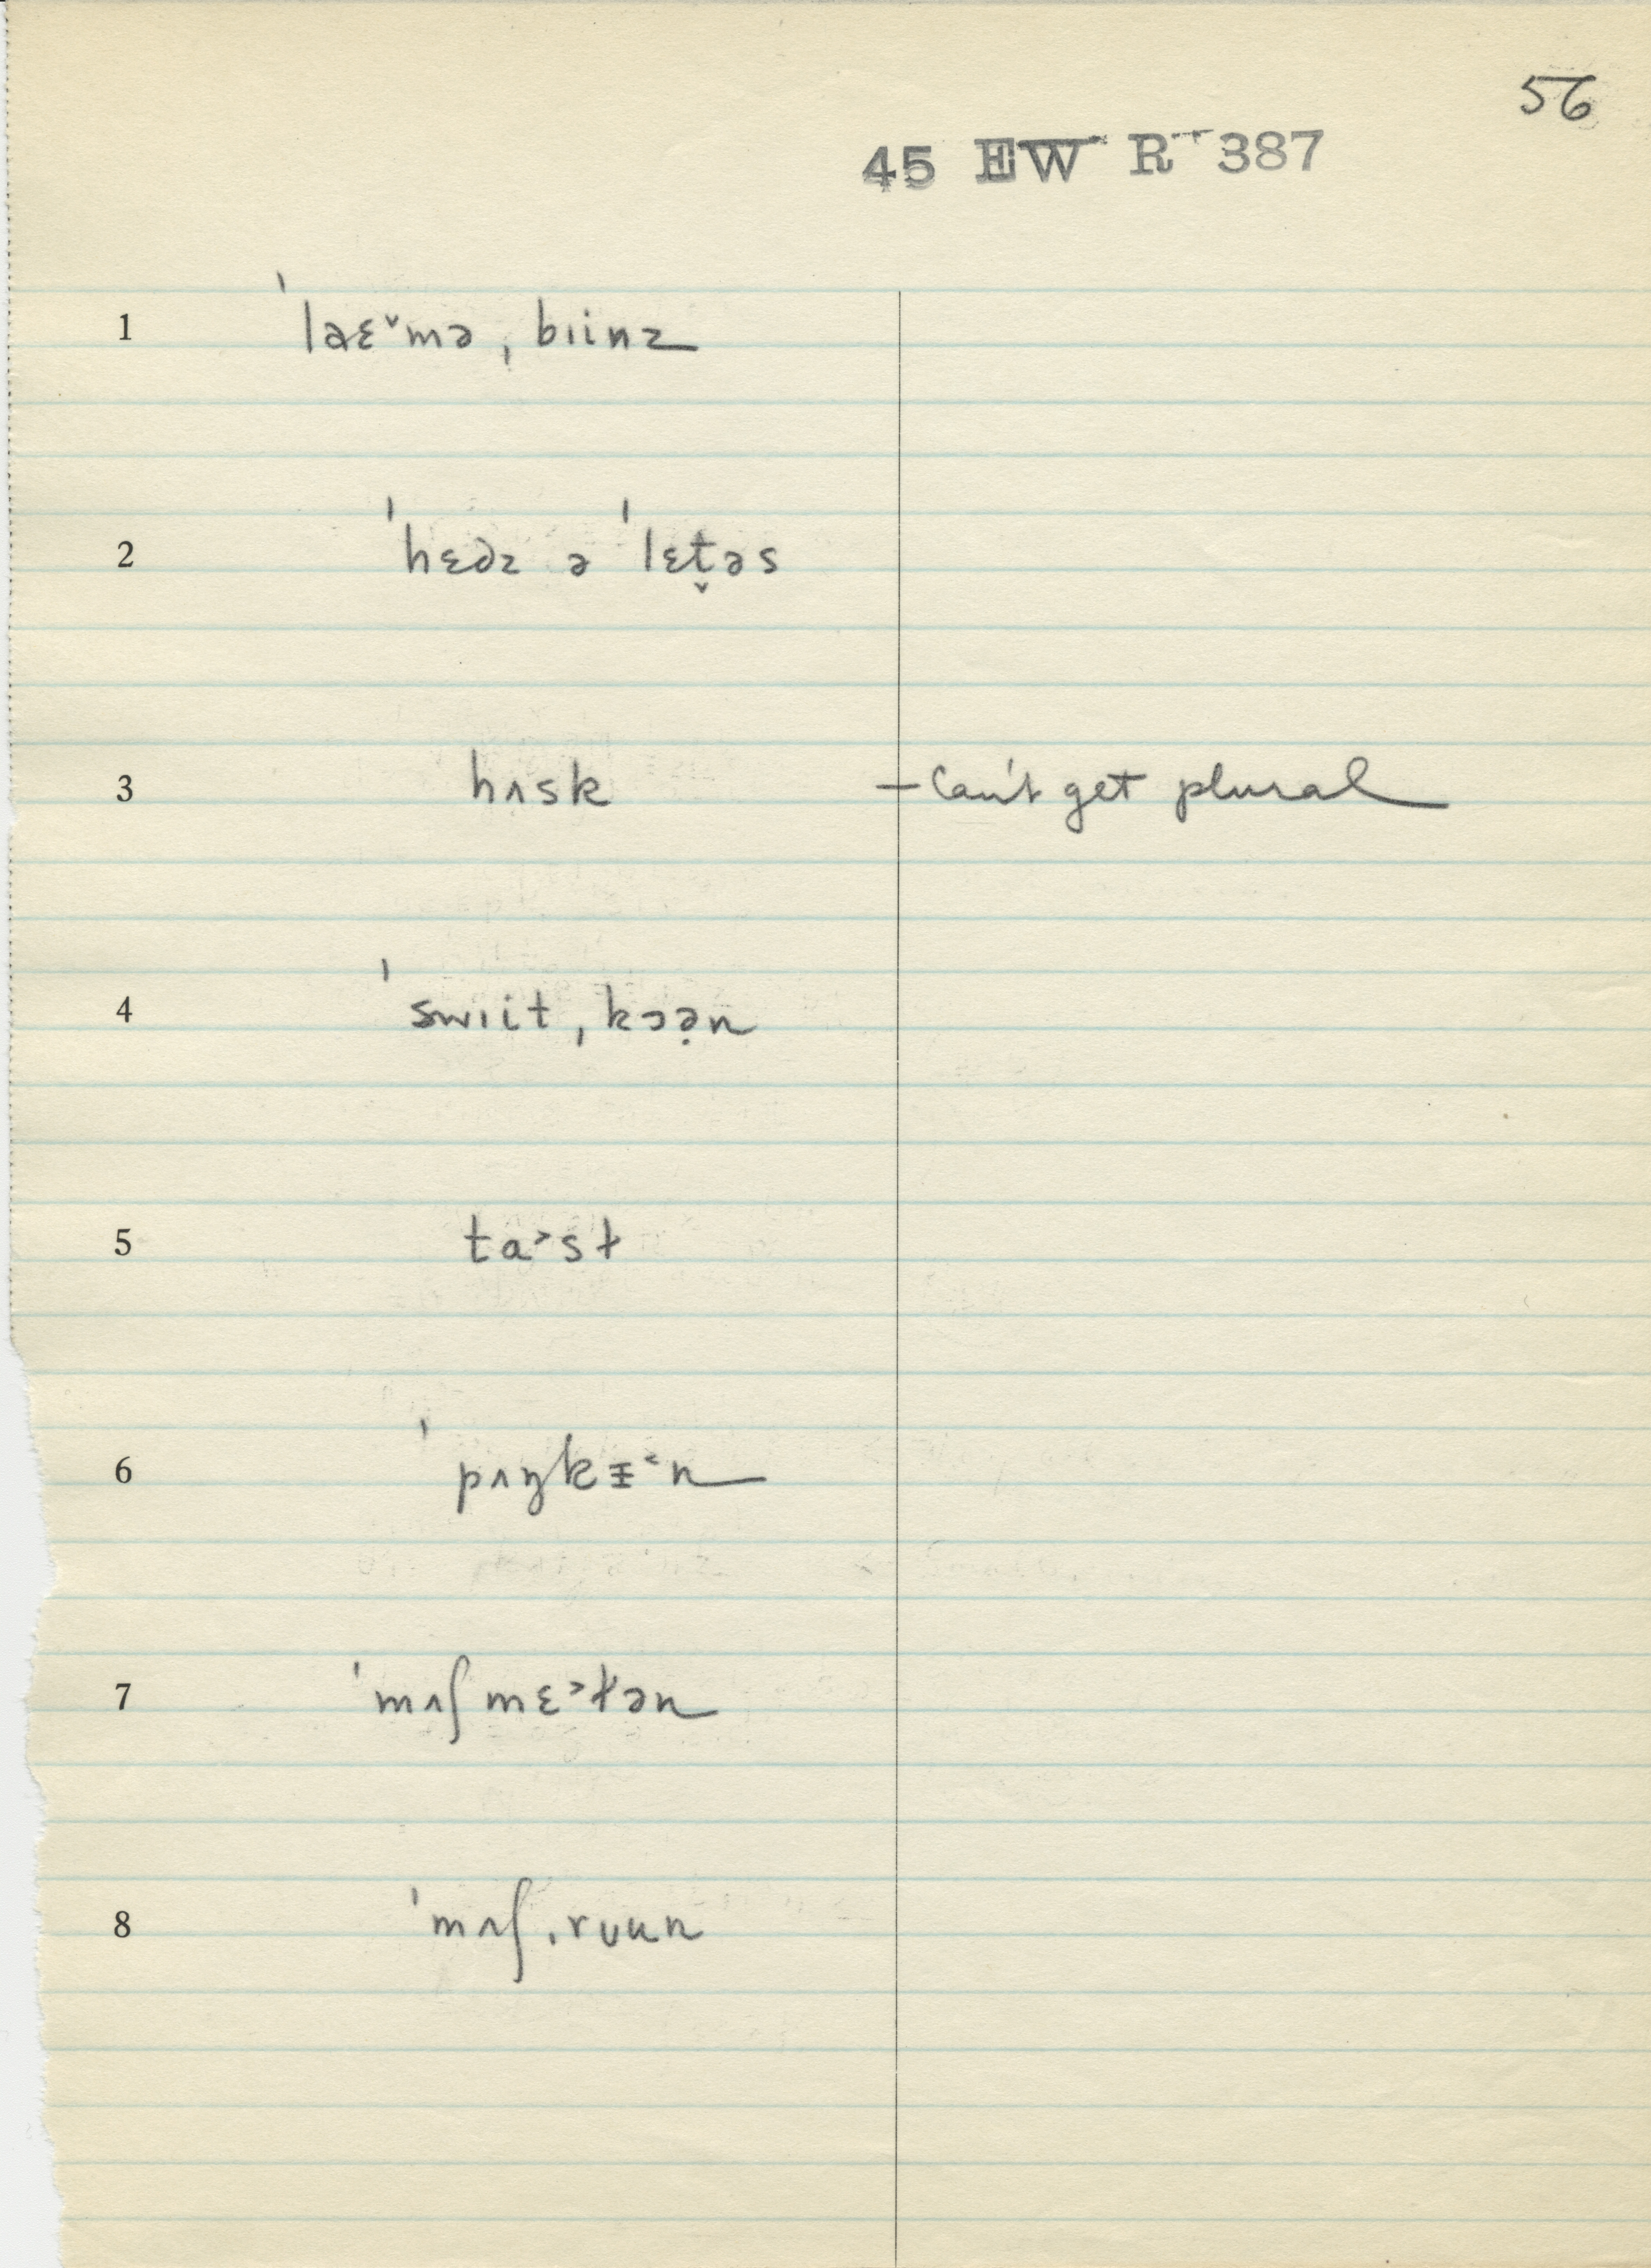 56
45 EW R 387
1 ˈlaɛ˅mə ˌbɪinz
2 ˈhɛdz ə ˈlɛt̬əs
3 hʌsk – Can't get plural
4 ˈswɪit ˌkɔə̣n
5 ta˃sɫ
6 ˈpʌŋkɪ̵˂n
7 ˈmʌʃmɛ˃ɫən
8 ˈmʌʃˌrʊun